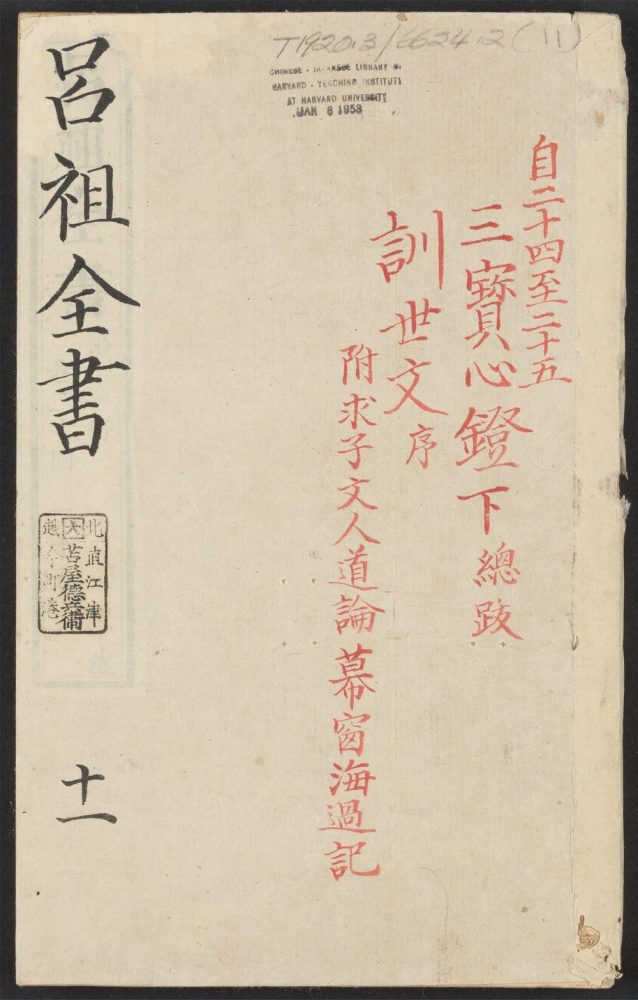 T1920.3/6624.2(11)
CHINESE - JAPANESE LIBRARY OF
HARVARD - YENCHING INSTITUTE
AT HARVARD UNIVERSITY
JAN 8 1953
自二十四至二十五
三寶心鐙下總跋
訓世文序
附求子文人道論幕窗海過記
呂祖全書
十一
北直江津
苫屋德兵衛